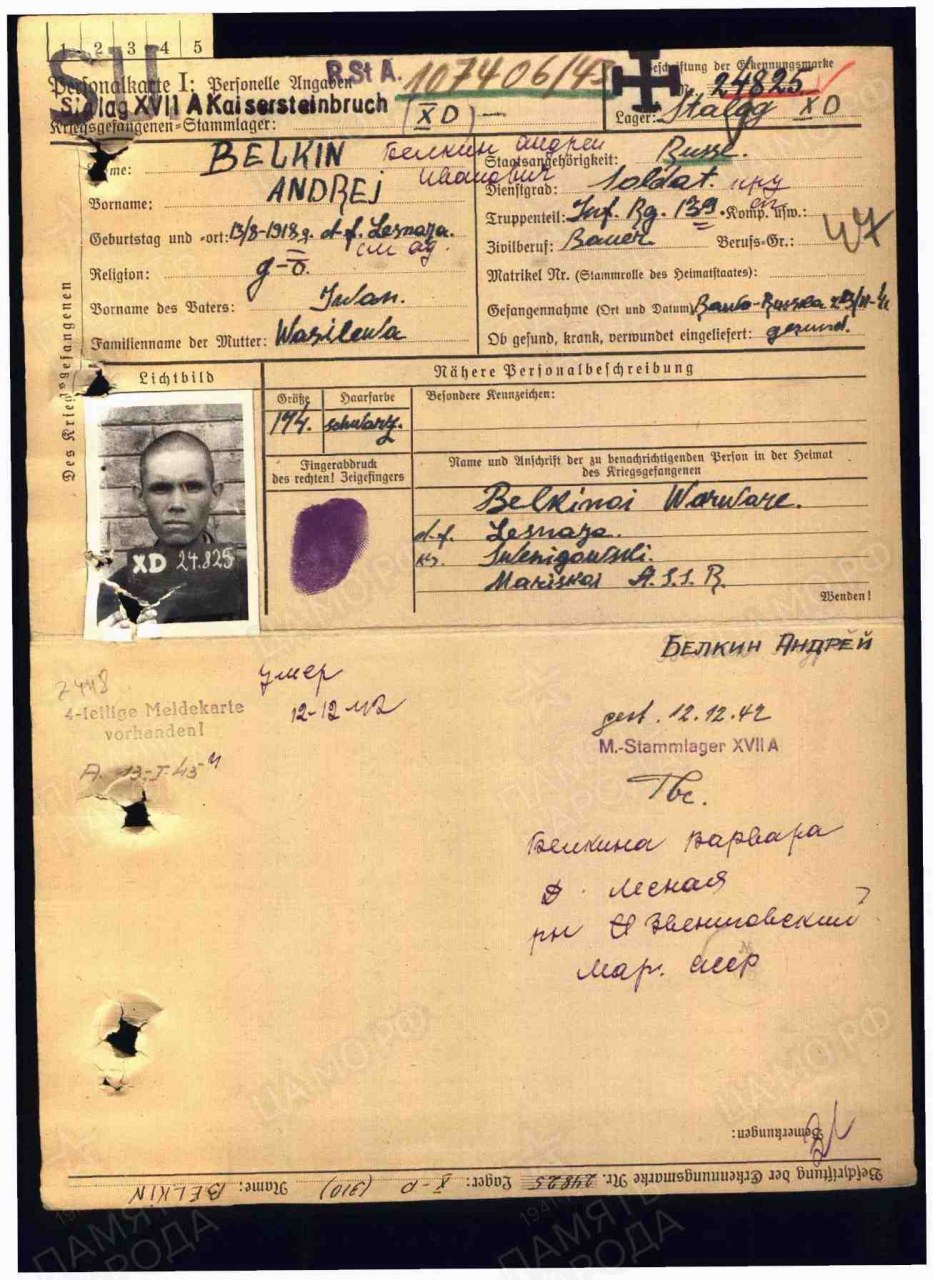 1 2 3 4 5
SU
Personalkarte I: Personelle Angaben
R.St A. 107406/43
Stalag XVII A Kaisersteinbruch
Kriegsgefangenen-Stammlager: (XD)
Beschriftung der Erkennungsmarke
Nr. 24825
Lager: Stalag XD
Des Kriegsgefangenen
Name: BELKIN Белкин Андрей
Иванович
Vorname: ANDREJ
Geburtstag und -ort: 13/8-1918 g. d.f. Lesnaja.
Religion: g-o.
Vorname des Vaters: Iwan.
Familienname der Mutter: Wasilewa
Staatsangehörigkeit: Russe.
Dienstgrad: Soldat.
Truppenteil: Inf. Rg. 139 Komp. usw.:
Zivilberuf: Bauer. Berufs-Gr.:
Matrikel Nr. (Stammrolle des Heimatstaates):
Gefangennahme (Ort und Datum)
Ob gesund, krank, verwundet eingeliefert: gesund.
Lichtbild
XD 24.825
Nähere Personalbeschreibung
Größe Haarfarbe Besondere Kennzeichen:
174. schwarz.
Fingerabdruck
des rechten! Zeigefingers
Name und Anschrift der zu benachrichtigenden Person in der Heimat
des Kriegsgefangenen
Belkinoi Warware.
d.f. Lesnaja.
Swenigowski.
Mariskoi A.S.S.R.
Wenden!
БЕЛКИН АНДРЕЙ
2448
4-teilige Meldekarte
vorhanden!
A. 13-I-43
умер
12-12-42
gest. 12.12.42
M.-Stammlager XVII A
Tbc.
Белкина Варвара
д. Лесная
рн Звениговский
Мар. АССР
Bemerkungen:
Beschriftung der Erkennungsmarke Nr. 24825 Lager: X-D (310) Name: BELKIN
ПАМЯТЬ НАРОДА
ЦАМО.РФ